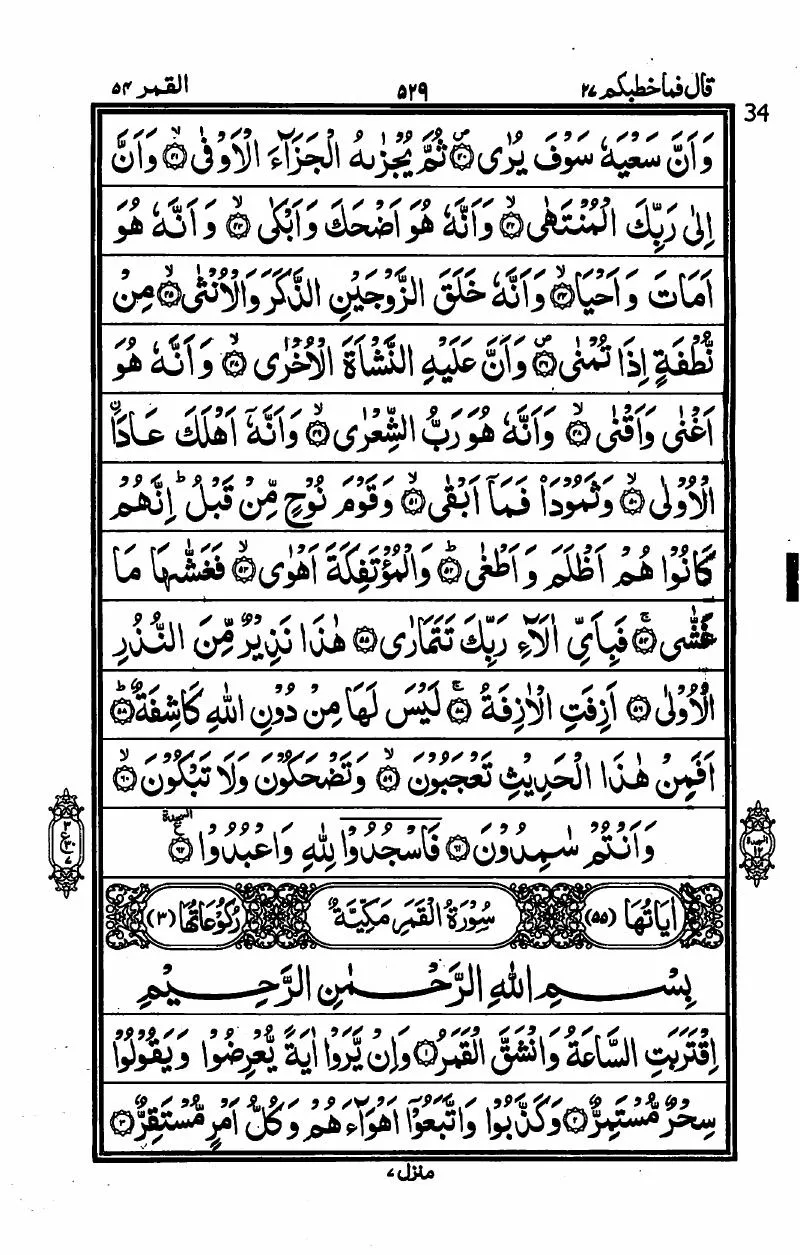 قال فما خطبكم ٢٧ ٥٢٩ القمر ٥٤
34
وَاَنَّ سَعْيَهٗ سَوْفَ يُرٰى ۪﴿۴۰﴾ ثُمَّ يُجْزٰىهُ الْجَزَآءَ الْاَوْفٰى ۙ﴿۴۱﴾ وَاَنَّ
اِلٰى رَبِّكَ الْمُنْتَهٰى ۙ﴿۴۲﴾ وَاَنَّهٗ هُوَ اَضْحَكَ وَاَبْكٰى ۙ﴿۴۳﴾ وَاَنَّهٗ هُوَ
اَمَاتَ وَاَحْيَا ۙ﴿۴۴﴾ وَاَنَّهٗ خَلَقَ الزَّوْجَيْنِ الذَّكَرَ وَالْاُنْثٰى ۙ﴿۴۵﴾ مِنْ
نُّطْفَةٍ اِذَا تُمْنٰى ۪﴿۴۶﴾ وَاَنَّ عَلَيْهِ النَّشْاَةَ الْاُخْرٰى ۙ﴿۴۷﴾ وَاَنَّهٗ هُوَ
اَغْنٰى وَاَقْنٰى ۙ﴿۴۸﴾ وَاَنَّهٗ هُوَ رَبُّ الشِّعْرٰى ۙ﴿۴۹﴾ وَاَنَّهٗۤ اَهْلَكَ عَادَا ۨ
الْاُوْلٰى ۙ﴿۵۰﴾ وَثَمُوْدَا۟ فَمَاۤ اَبْقٰى ۙ﴿۵۱﴾ وَقَوْمَ نُوْحٍ مِّنْ قَبْلُ ؕ اِنَّهُمْ
كَانُوْا هُمْ اَظْلَمَ وَاَطْغٰى ؕ﴿۵۲﴾ وَالْمُؤْتَفِكَةَ اَهْوٰى ۙ﴿۵۳﴾ فَغَشّٰىهَا مَا
غَشّٰى ۚ﴿۵۴﴾ فَبِاَىِّ اٰلَآءِ رَبِّكَ تَتَمَارٰى ﴿۵۵﴾ هٰذَا نَذِيْرٌ مِّنَ النُّذُرِ
الْاُوْلٰى ﴿۵۶﴾ اَزِفَتِ الْاٰزِفَةُ ۚ﴿۵۷﴾ لَيْسَ لَهَا مِنْ دُوْنِ اللّٰهِ كَاشِفَةٌ ؕ﴿۵۸﴾
اَفَمِنْ هٰذَا الْحَدِيْثِ تَعْجَبُوْنَ ۙ﴿۵۹﴾ وَتَضْحَكُوْنَ وَلَا تَبْكُوْنَ ۙ﴿۶۰﴾
وَاَنْتُمْ سٰمِدُوْنَ ﴿۶۱﴾ فَاسْجُدُوْا لِلّٰهِ وَاعْبُدُوْا ﴿۶۲﴾ السجدة
السجدة ١٢
٣ ع ٣٠ ٧
اٰيَاتُهَا (٥٥) سُوْرَةُ الْقَمَرِ مَكِّيَّةٌ رُكُوْعَاتُهَا (٣)
بِسْمِ اللّٰهِ الرَّحْمٰنِ الرَّحِيْمِ
اِقْتَرَبَتِ السَّاعَةُ وَانْشَقَّ الْقَمَرُ ﴿۱﴾ وَاِنْ يَّرَوْا اٰيَةً يُّعْرِضُوْا وَيَقُوْلُوْا
سِحْرٌ مُّسْتَمِرٌّ ﴿۲﴾ وَكَذَّبُوْا وَاتَّبَعُوْۤا اَهْوَآءَهُمْ وَكُلُّ اَمْرٍ مُّسْتَقِرٌّ ﴿۳﴾
منزل ٧